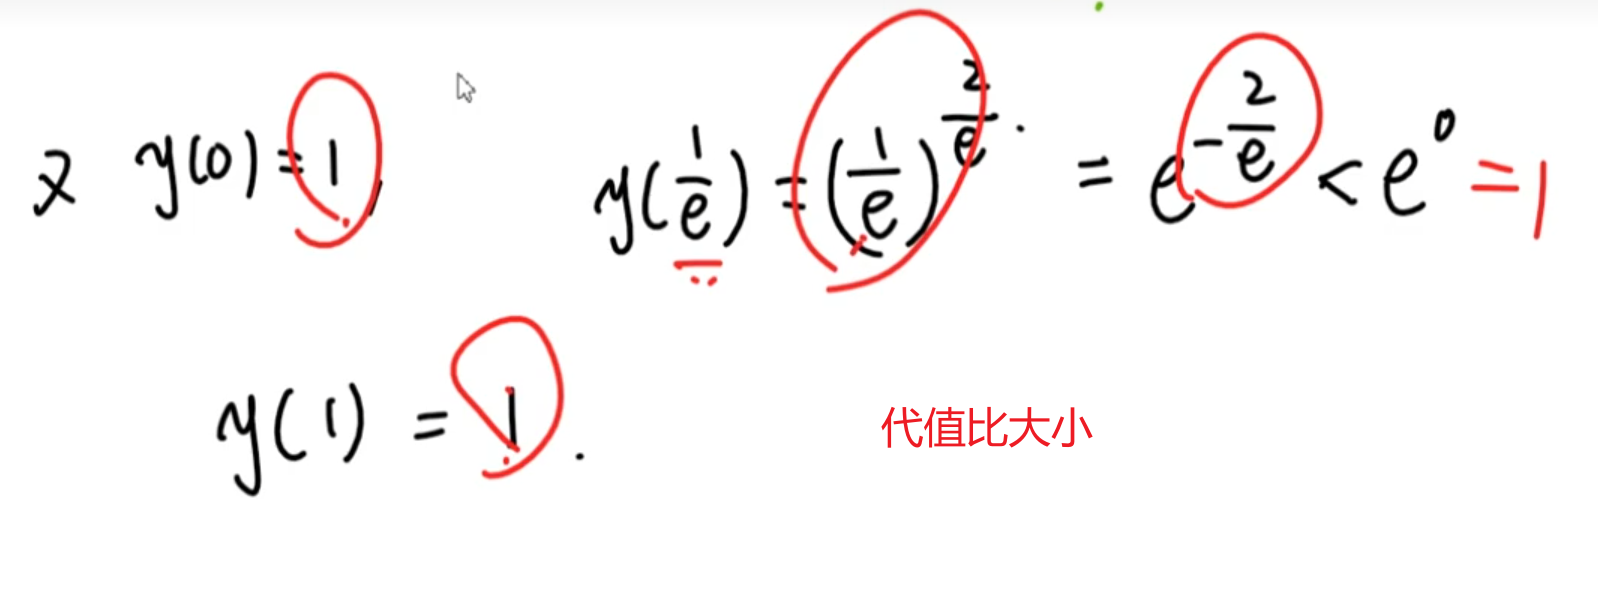 又 y(0)=1, y(1/e) = (1/e)^(2/e). = e^(-2/e) < e^0 = 1
y(1) = 1.
代值比大小